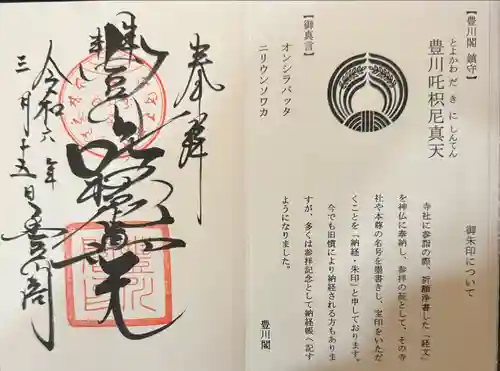 奉拝
豊川吒枳尼真天
令和六年
三月十五日
豊川閣
【豊川閣 鎮守】
とよかわ だ き に しんてん
豊川吒枳尼真天
【御真言】
オンシラバッタ
ニリウンソワカ
御朱印について
寺社に参詣の際、祈願浄書した「経文」
を神仏に奉納し、参拝の証として、その寺
社や本尊の名号を墨書きし、宝印をいただ
くことを「納経・朱印」と申しております。
今でも旧慣により納経される方もありま
すが、多くは参拝記念として納経帳へ記す
ようになりました。
豊川閣